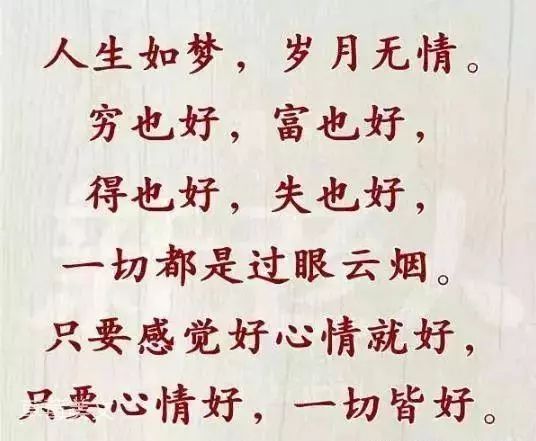 人生如梦，岁月无情。
穷也好，富也好，
得也好，失也好，
一切都是过眼云烟。
只要感觉好心情就好，
只要心情好，一切皆好。